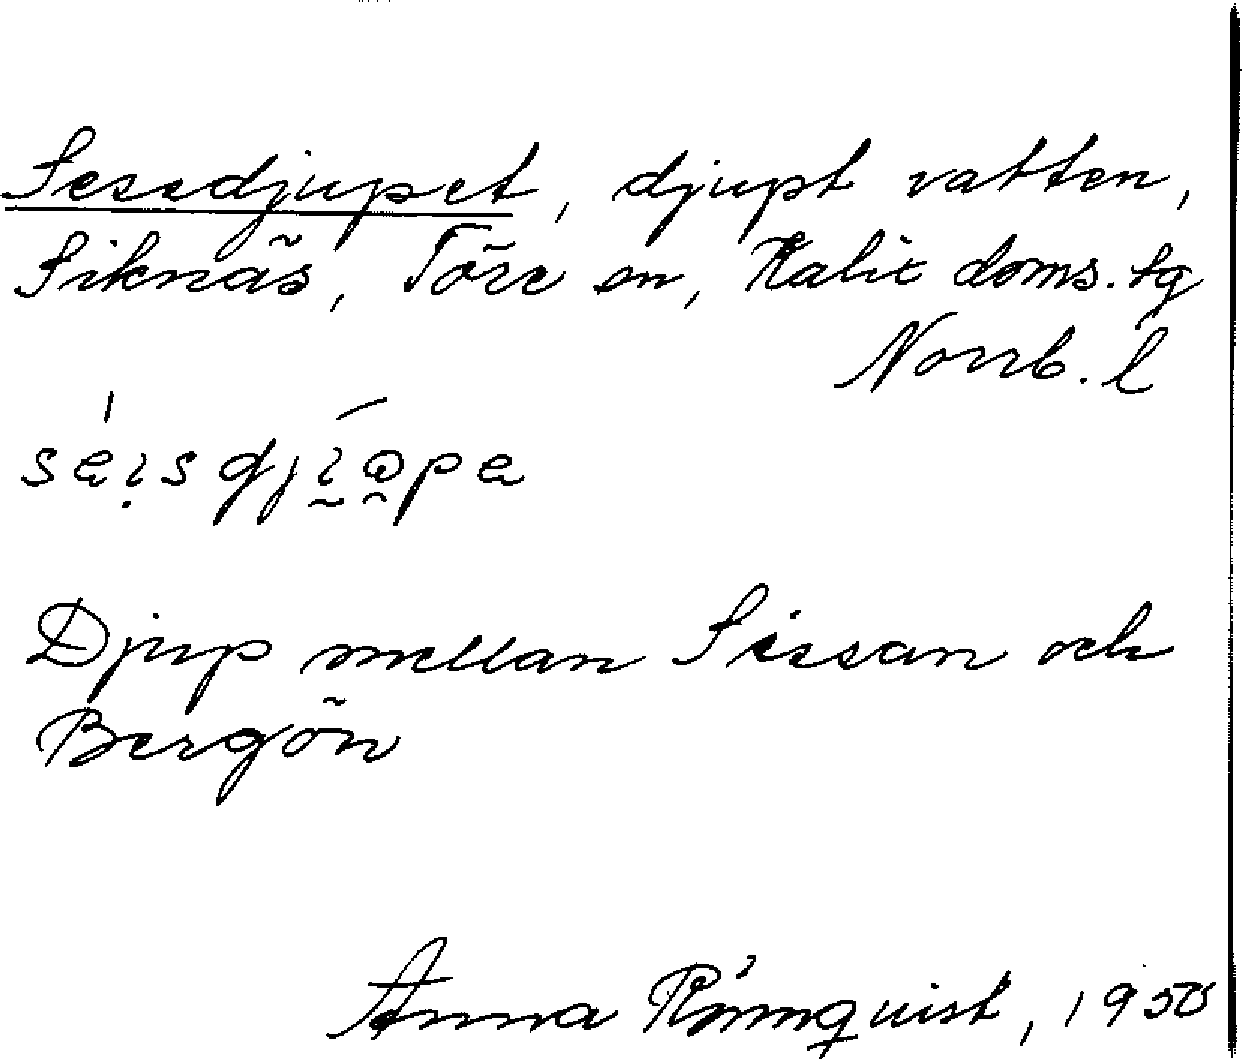 Sessdjupet, djupt vatten,
Siknäs, Töre sn, Kalix doms. tg
Norrb. l
Djup mellan Sissan och
Bergön
Anna Römquist, 1950